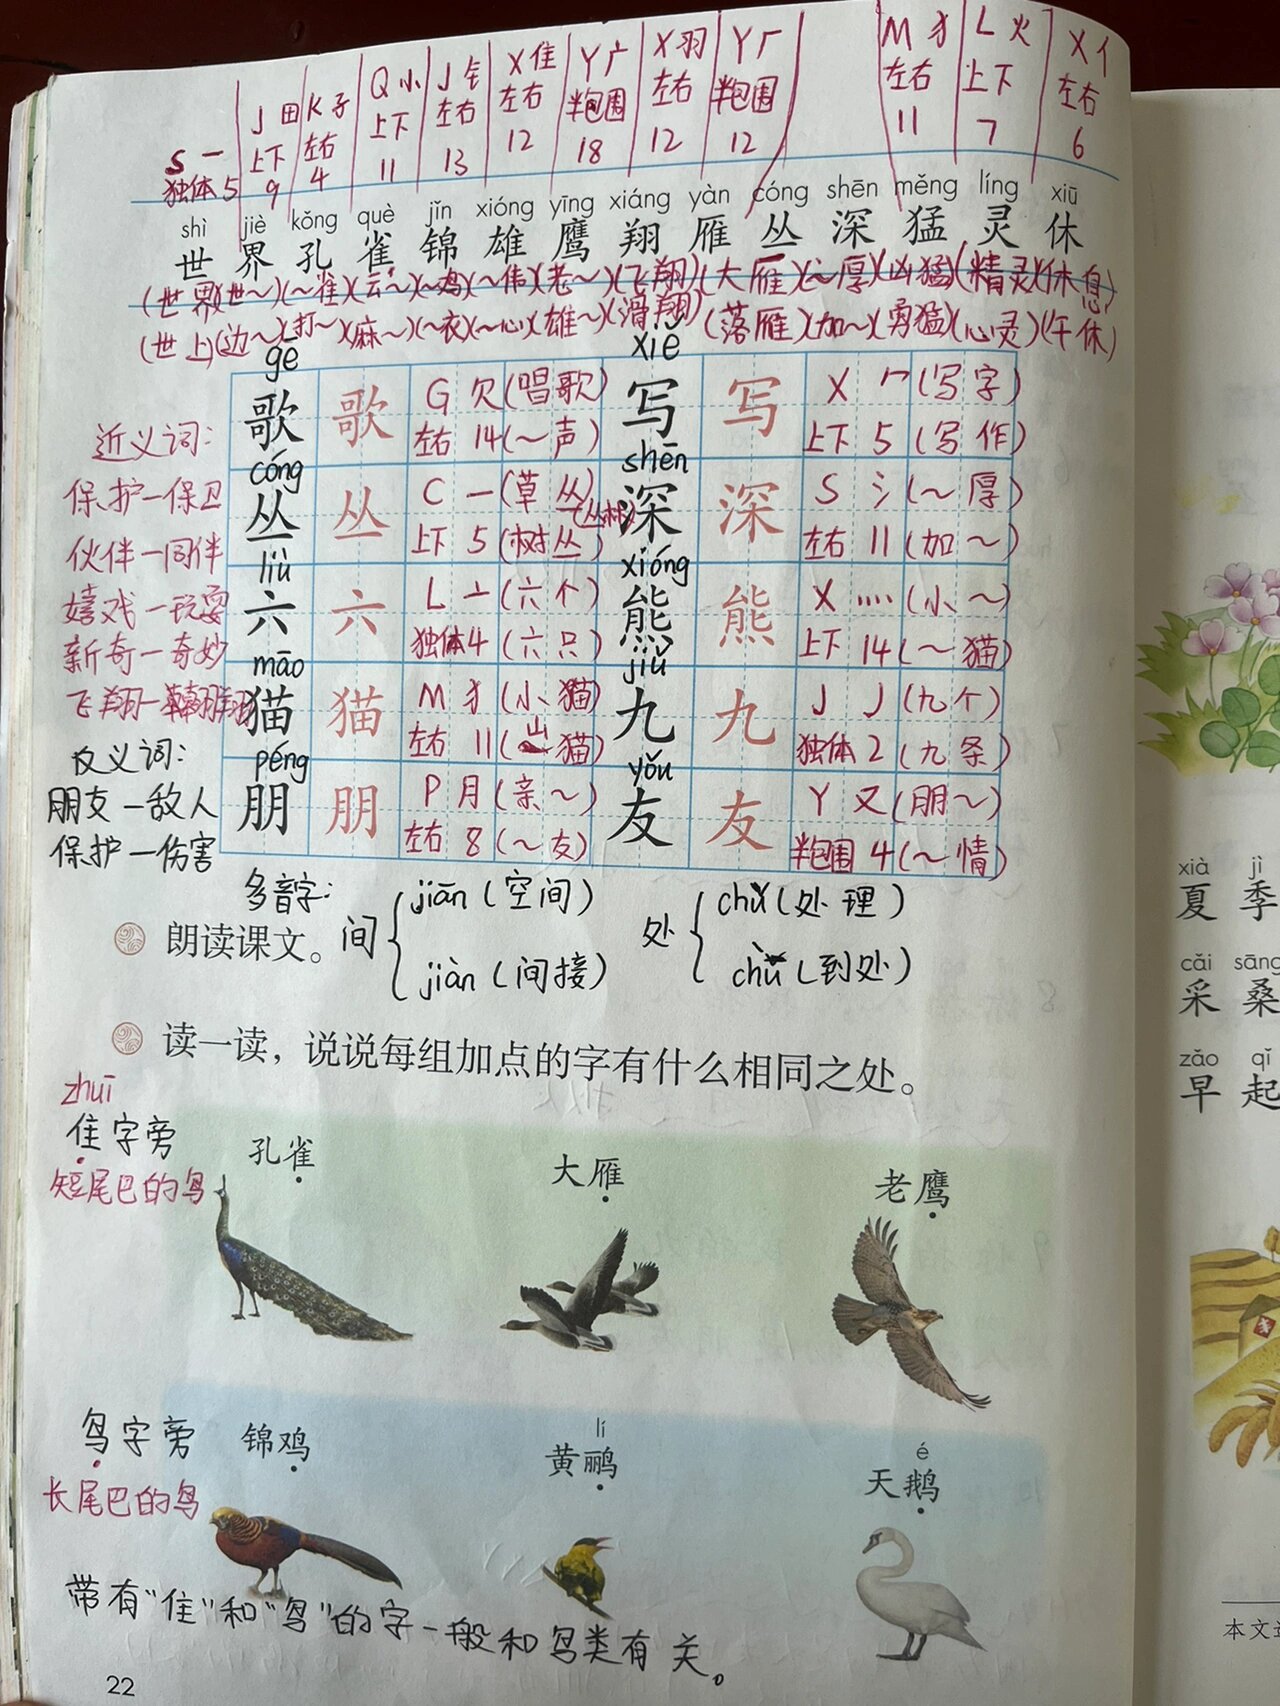 S 一 J 田 K 孑 Q 小 J 钅 X 隹 Y 广 X 羽 Y 厂 M 犭 L 火 X 亻
独体 上下 左右 上下 左右 左右 半包围 左右 半包围 左右 上下 左右
5 9 4 11 13 12 18 12 12 11 7 6
shì jiè kǒng què jǐn xióng yīng xiáng yàn cóng shēn měng líng xiū
世 界 孔 雀 锦 雄 鹰 翔 雁 丛 深 猛 灵 休
(世界)(世~)(~雀)(云~)(~鸡)(~伟)(老~)(飞翔)(大雁)(~厚)(凶猛)(精灵)(休息)
(世上)(边~)(打~)(麻~)(~衣)(~心)(雄~)(滑翔)(落雁)(加~)(勇猛)(心灵)(午休)
gē xiě
歌 歌 G 欠 (唱歌) 写 写 X 冖 (写字)
左右 14 (~声) 上下 5 (写作)
cóng shēn
丛 丛 C 一 (草丛) (丛林) 深 深 S 氵 (~厚)
上下 5 (树丛) 左右 11 (加~)
liù xióng
六 六 L 亠 (六个) 熊 熊 X 灬 (小~)
独体 4 (六只) 上下 14 (~猫)
māo jiǔ
猫 猫 M 犭 (小猫) 九 九 J 丿 (九个)
左右 11 (山猫) 独体 2 (九条)
péng yǒu
朋 朋 P 月 (亲~) 友 友 Y 又 (朋~)
左右 8 (~友) 半包围 4 (~情)
近义词：
保护—保卫
伙伴—同伴
嬉戏—玩耍
新奇—奇妙
飞翔—翱翔
反义词：
朋友—敌人
保护—伤害
多音字：
间 jiān (空间) jiàn (间接)
处 chǔ (处理) chù (到处)
朗读课文。
读一读，说说每组加点的字有什么相同之处。
zhuī
隹字旁
短尾巴的鸟
孔雀 大雁 老鹰
鸟字旁
长尾巴的鸟
lí é
锦鸡 黄鹂 天鹅
带有“隹”和“鸟”的字一般和鸟类有关。
22
xià jì
夏 季
cǎi sāng
采 桑
zǎo qǐ
早 起
本文